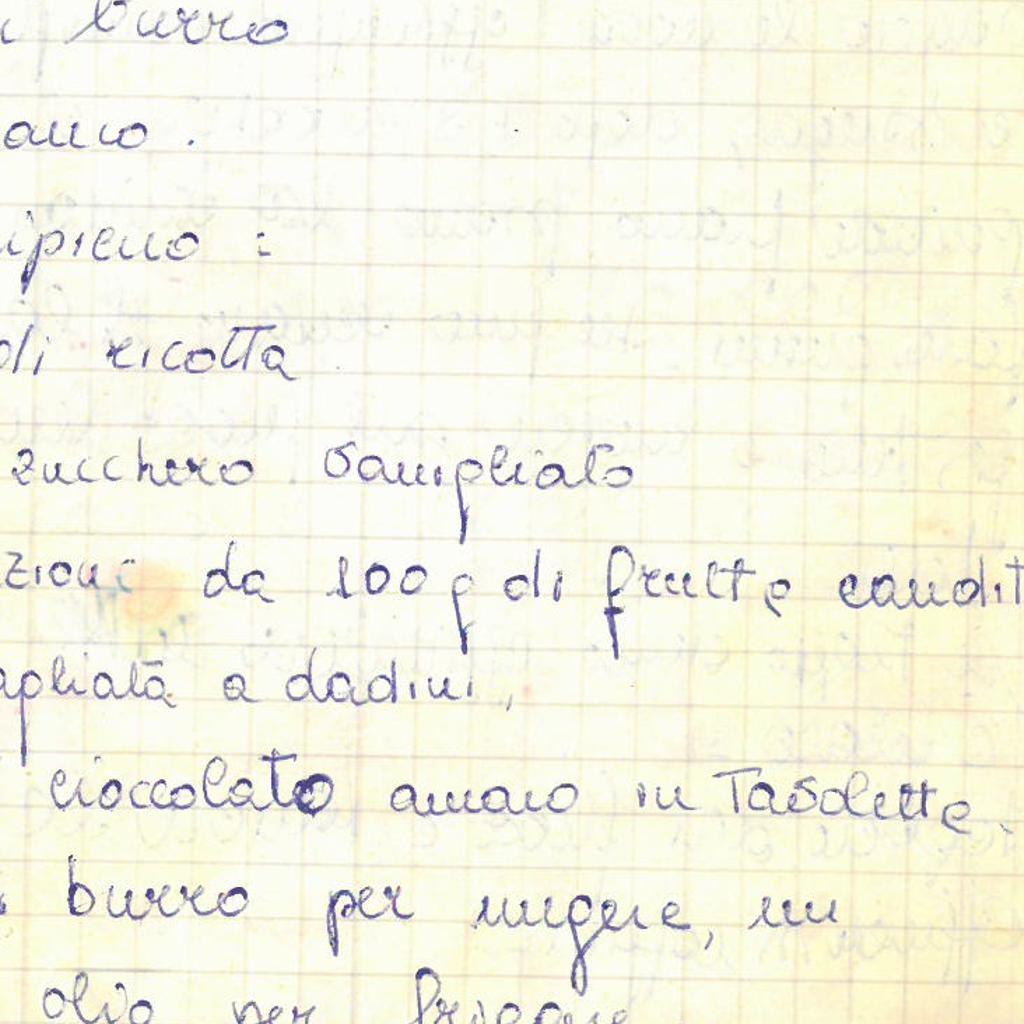 burro
ipieno :
di ricotta
zucchero vanigliato
zioni da 100 g di frutta candit
agliata a dadini,
cioccolato amaro in tavoletta.
burro per ungere, un
olio per friggere